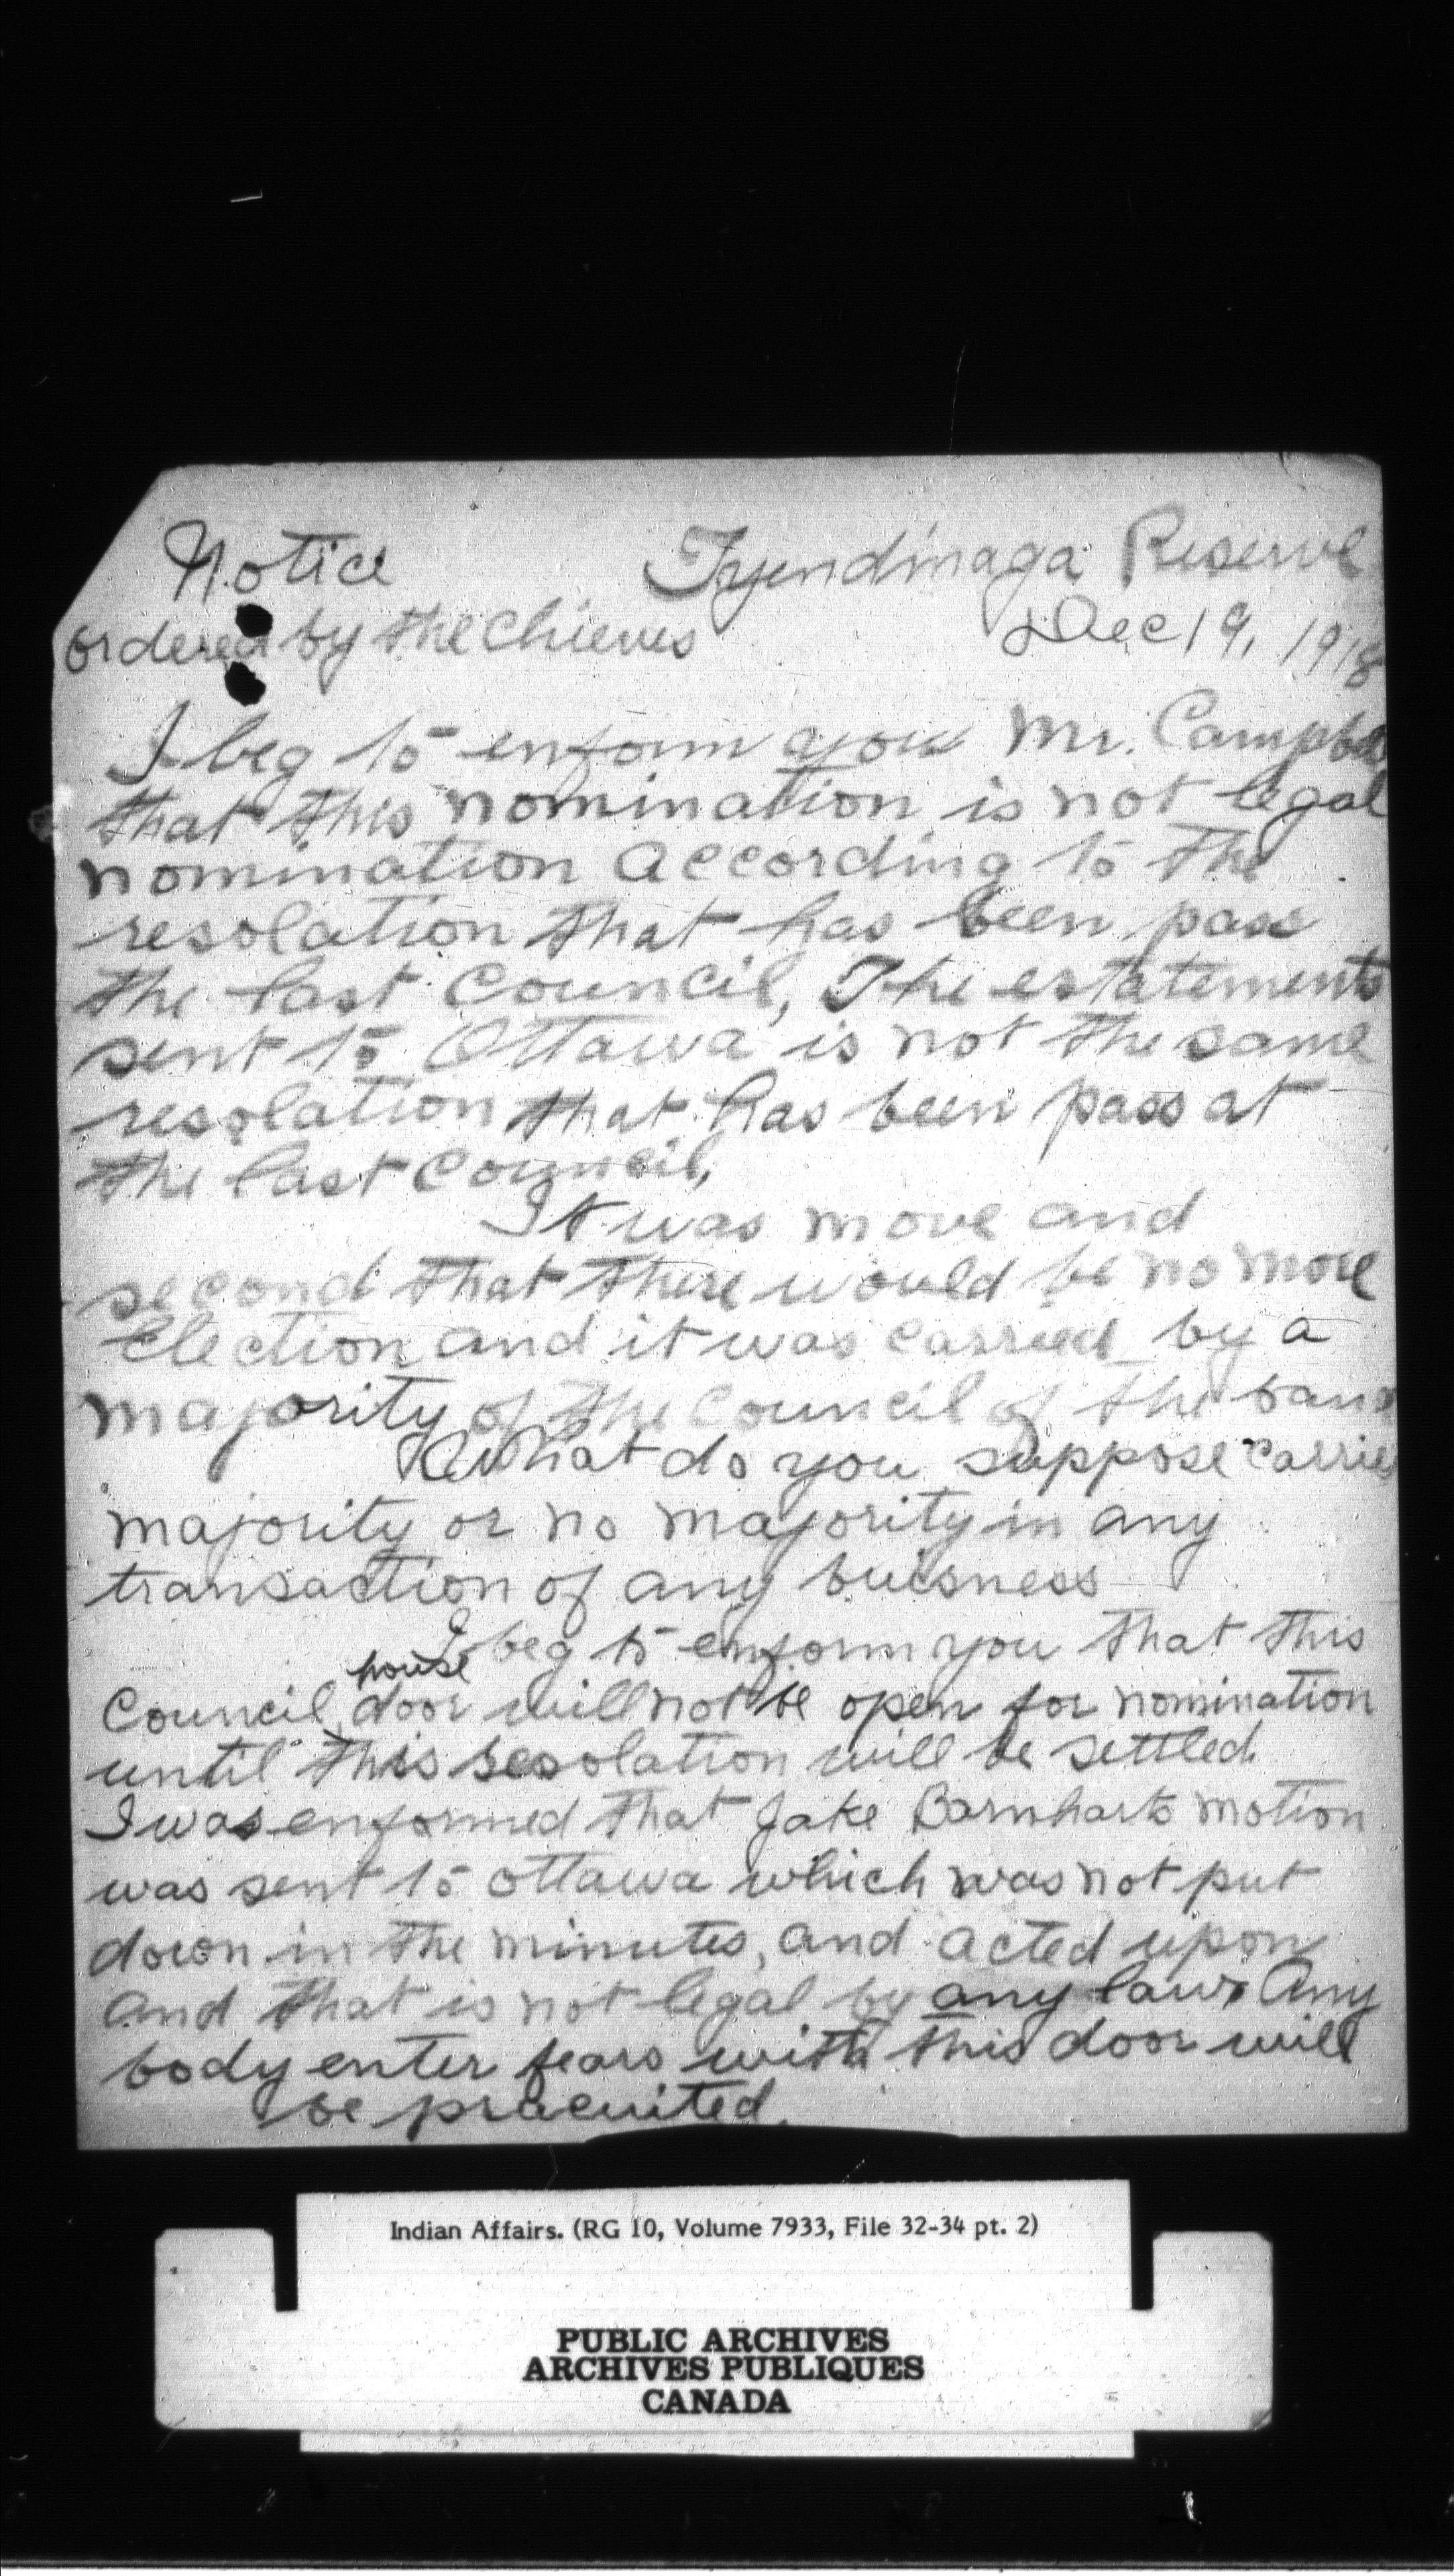 Notice Tyendinaga Reserve
ordered by the Chieves Dec 19, 1918
I beg to enform you Mr. Campbell
that this nomination is not legal
nomination according to the
resolation that has been pass
the last Council, The estatements
sent to Ottawa is not the same
resolation that has been pass at
the last Council,
It was move and
second that there would be no more
Election and it was carried by a
majority of the Council of the band
What do you suppose carries
majority or no majority in any
transaction of any buisness
I beg to enform you that this
Council house door will not be open for nomination
until this resolation will be settled
I was enformed that Jake Barnharts motion
was sent to ottawa which was not put
down in the minutes, and acted upon
and that is not legal by any law. Any
body enter fears with this door will
be pracuited.
Indian Affairs. (RG 10, Volume 7933, File 32-34 pt. 2)
PUBLIC ARCHIVES
ARCHIVES PUBLIQUES
CANADA